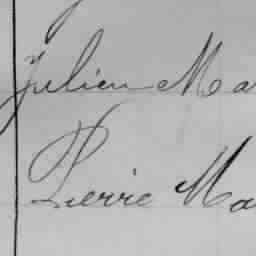 Julien Ma
Pierre Ma